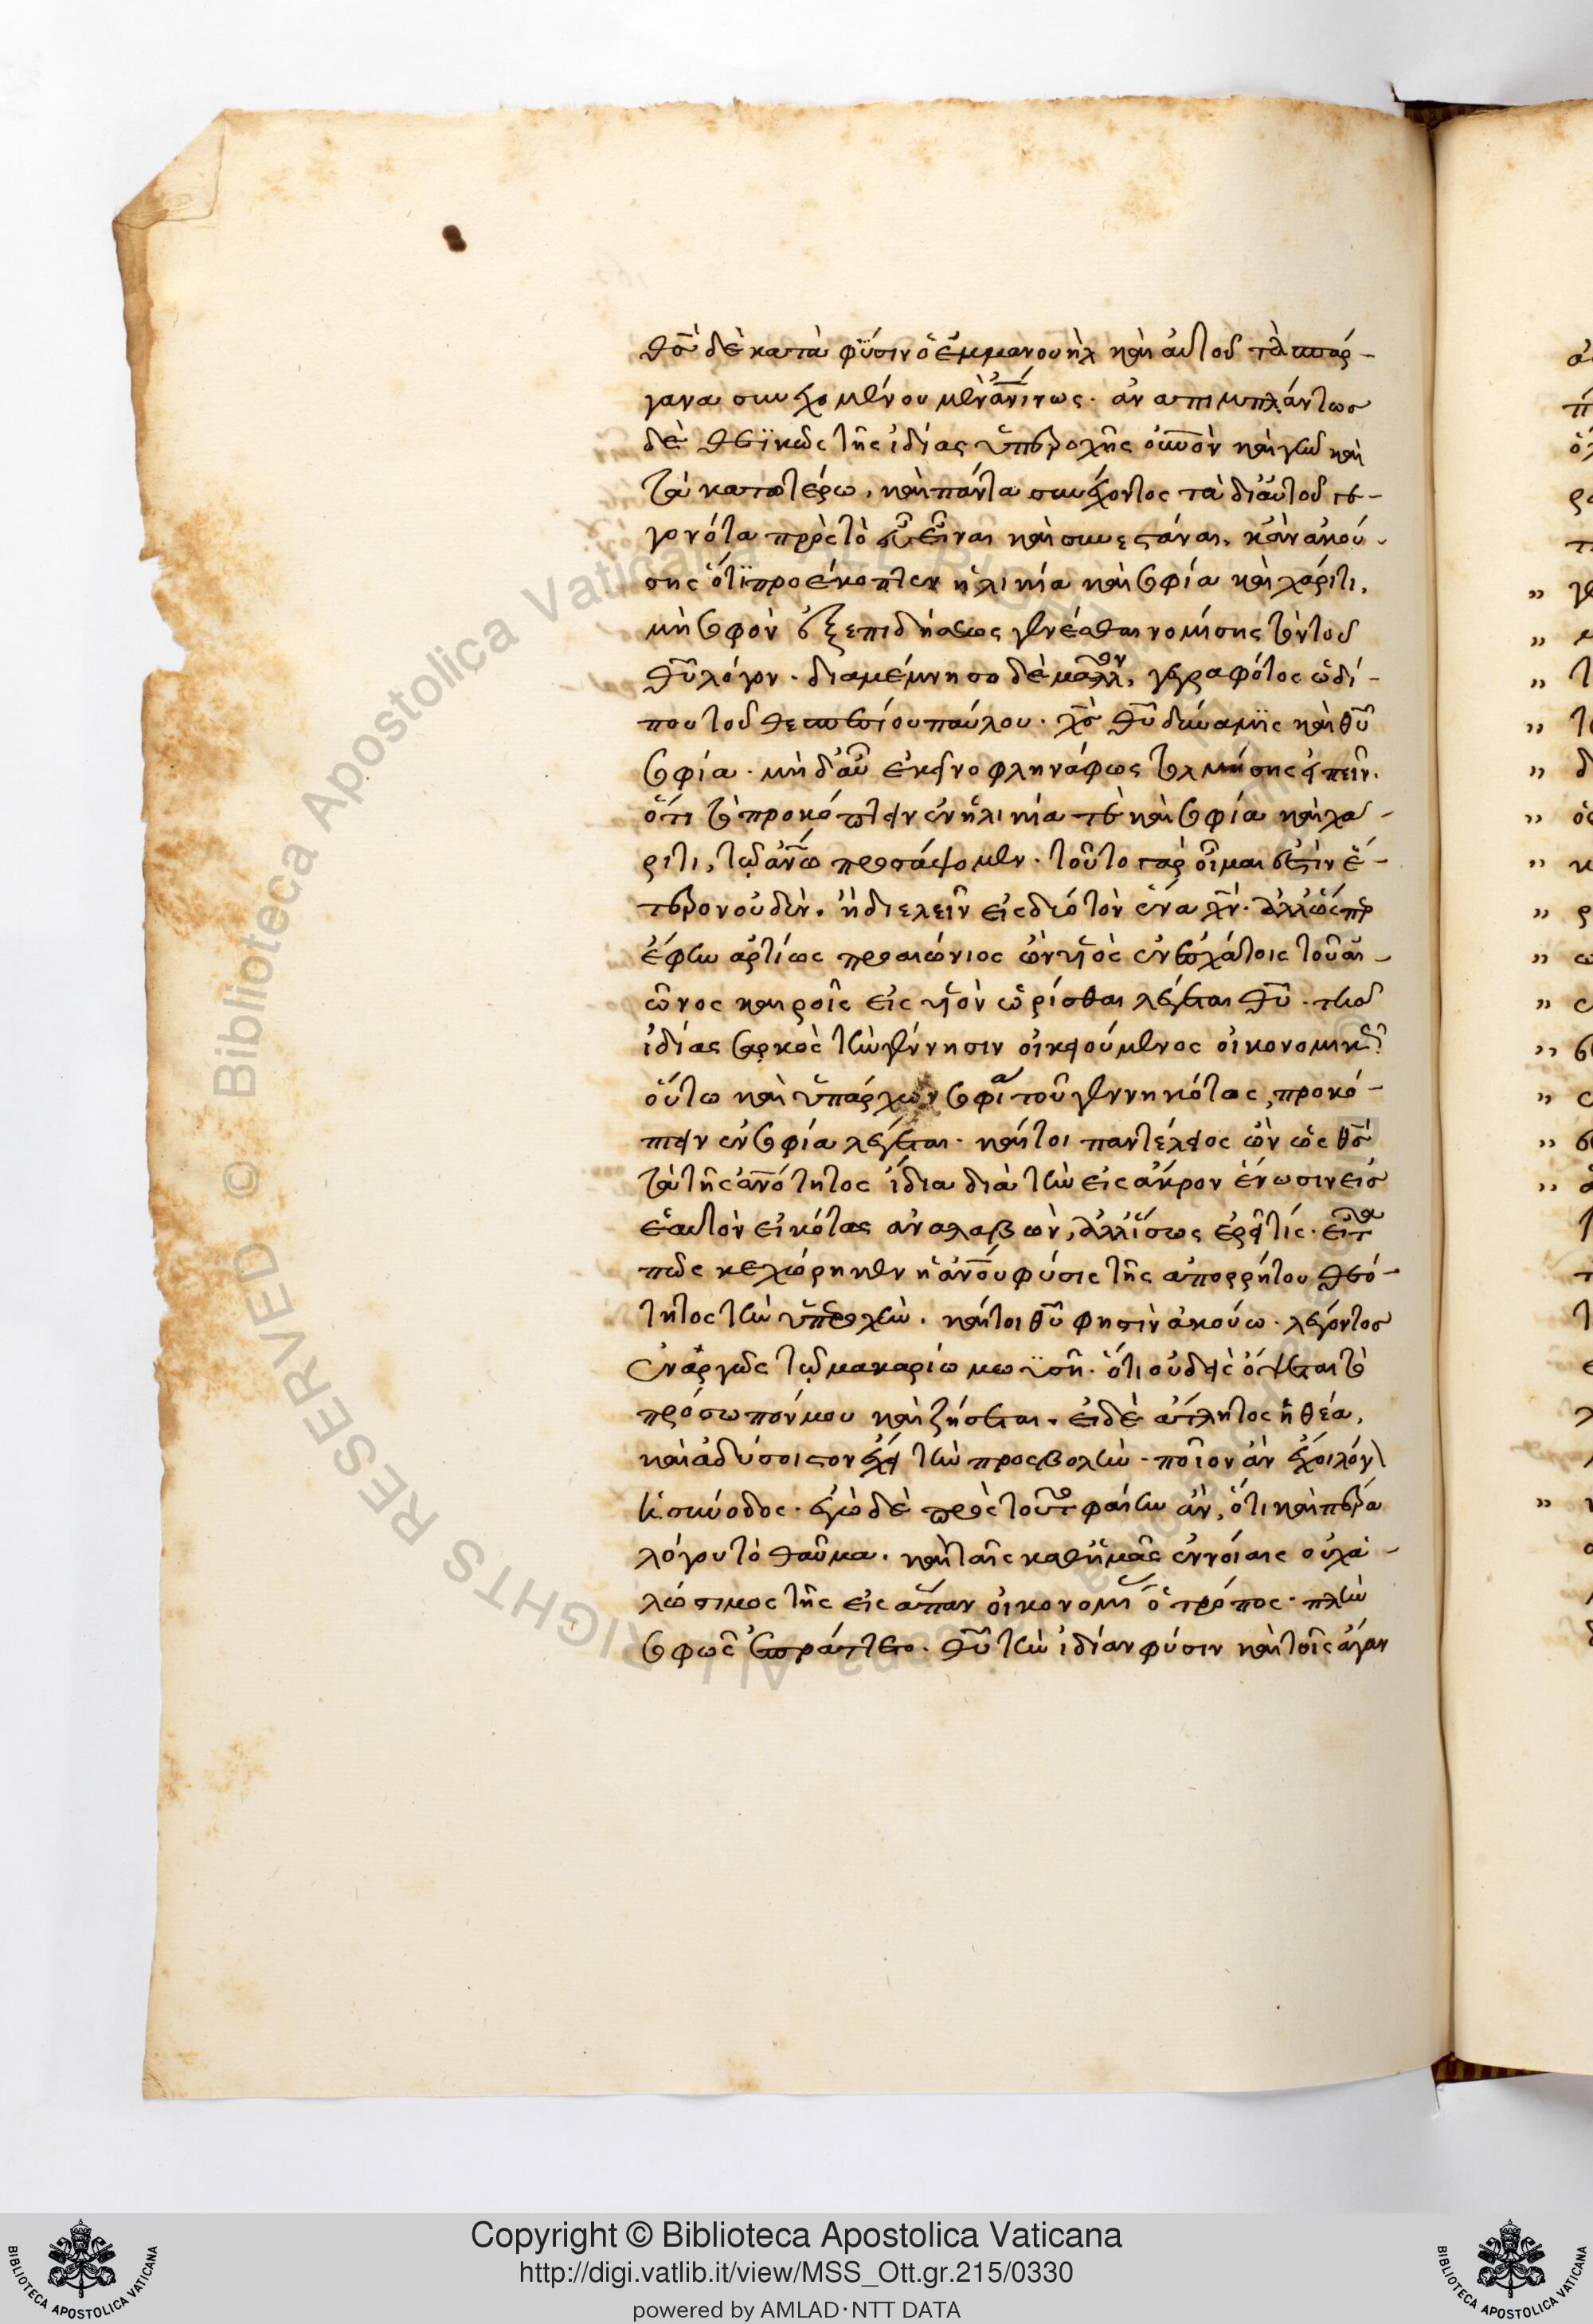 θς δὲ κατὰ φύσιν ὁ ἐμμανουὴλ καὶ αὐτοῦ τὰ σπάρ-
γανα συνεχομένου μὲν ἀνίνως· ἀναπιμπλάντως
δὲ θεϊκῶς τῆς ἰδίας ὑπεροχῆς οὐνὸν καὶ γῆν καὶ
τὰ κατωτέρω, καὶ πάντα συνέχοντος τὰ δι' αὐτοῦ γε-
γονότα πρὸς τὸ εὖ εἶναι καὶ συνεστάναι. κἂν ἀκού-
σης ὅτι προέκοπτεν ἡλικία καὶ σοφία καὶ χάριτι,
μὴ σοφὸν ἐξ ἐπιδόσεως γενέσθαι νομίσης τὸν τοῦ
θυ λόγον. διαμέμνησο δὲ μᾶλλον, γεγραφότος ὡδί-
που τοῦ θεσπεσίου παύλου. χς θυ δύναμις καὶ θυ
σοφία. μὴ δ' αὖ ἐκεῖνο φληνάφως τολμήσης εἰπεῖν.
ὅτι τὸ προκόπτειν ἐν ἡλικία τὲ καὶ σοφία καὶ χά-
ριτι, τῷ ἀνω προσάψομεν. τοῦτο γὰρ οἶμαι ἐστὶν ἕ-
τερον οὐδὲν. ἢ διελεῖν εἰς δύο τὸν ἕνα χν. ἀλλ' ὥσπερ
ἔφην ἀρτίως προαιώνιος ὢν υἱὸς ἐν ἐσχάτοις τοῦ αἰ-
ῶνος καιροῖς εἰς υἱὸν ὡρίσθαι λέγεται θυ. τῆς
ἰδίας σαρκὸς τὴν γέννησιν οἰκειούμενος οἰκονομικῶς
οὕτω καὶ ὑπάρχων σοφία τοῦ γεννηκότος, προκό-
πτειν ἐν σοφία λέγεται. καίτοι παντέλειος ὢν ὡς θς
τὰ τῆς ἀνότητος ἴδια διὰ τὴν εἰς ἄκρον ἕνωσιν εἰς
ἑαυτὸν εἰκότως ἀναλαβών, ἀλλ' ἴσως ἐρεῖ τίς. εἶτα
πῶς κεχώρηκεν ἡ ἀνου φύσις τῆς ἀπορρήτου θεό-
τητος τὴν ὑπεροχὴν. καίτοι θυ φησὶν ἀκούω. λέγοντος
ἐναργῶς τῷ μακαρίω μωϋσῆ. ὅτι οὐδεὶς ὄψεται τὸ
πρόσωπόν μου καὶ ζήσεται. εἰ δὲ ἄτλητος ἡ θέα,
καὶ ἀδύσοιστον ἔχει τὴν προσβολὴν. ποῖον ἂν ἔχοι λόγον
ἡ σύνοδος. ἐγὼ δὲ πρὸς τοῦτο φαίην ἂν, ὅτι καὶ πέρα
λόγου τὸ θαῦμα. καὶ ταῖς καθ' ἡμᾶς ἐννοίαις οὐχ ἁ-
λώσιμος τῆς εἰς ἅπαν οἰκονομίας ὁ τρόπος. πλὴν
σοφῶς ἐπράττετο. θυ τὴν ἰδίαν φύσιν καὶ τοῖς ἄγαν
Copyright © Biblioteca Apostolica Vaticana
http://digi.vatlib.it/view/MSS_Ott.gr.215/0330
powered by AMLAD·NTT DATA